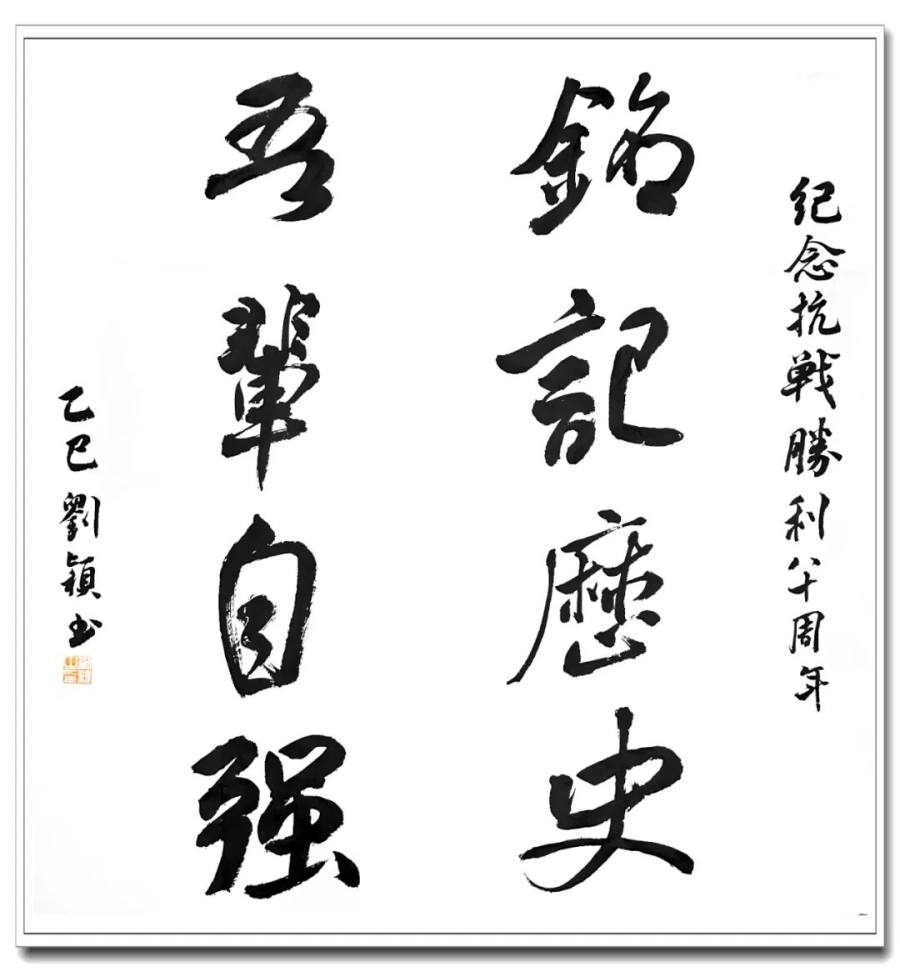 纪念抗戦勝利八十周年
銘記歷史
吾輩自强
乙巳劉穎书